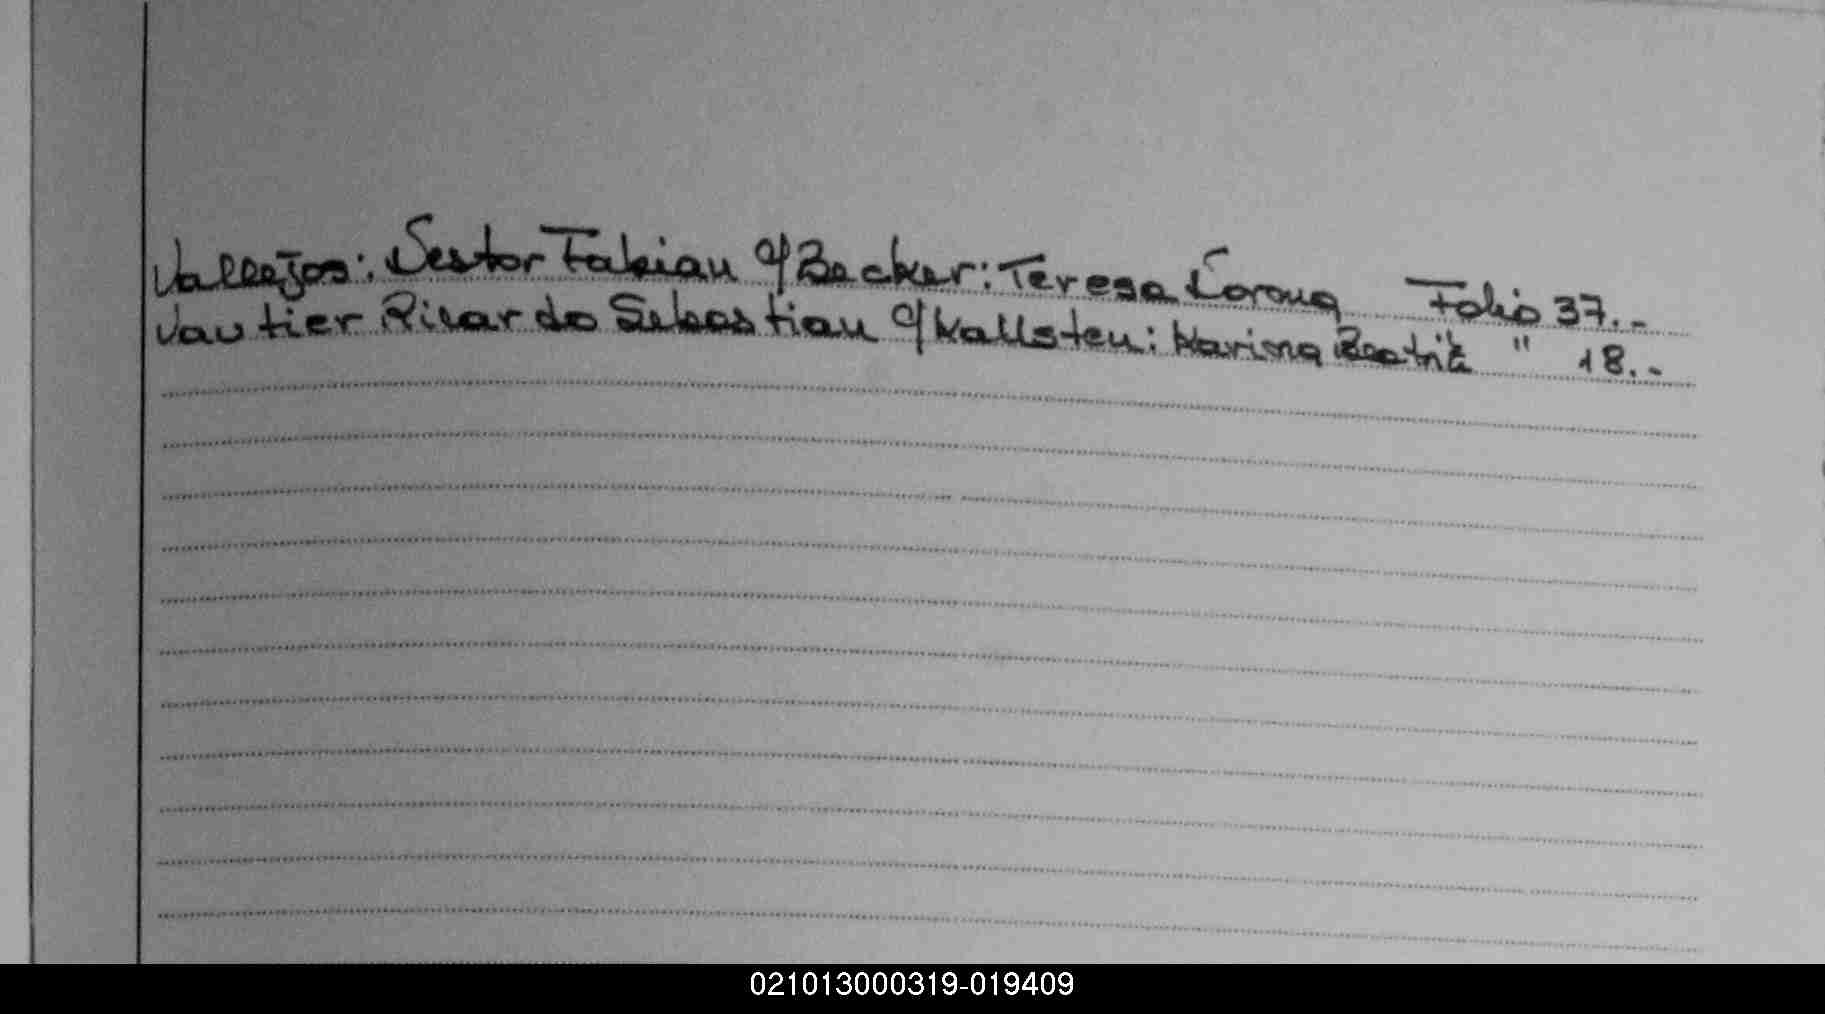 Vallejos: Nestor Fabian c/Becker: Teresa Lorena Folio 37.-
Vautier Ricardo Sebastian c/Kallsten: Karina Beatriz " 18.-
021013000319-019409